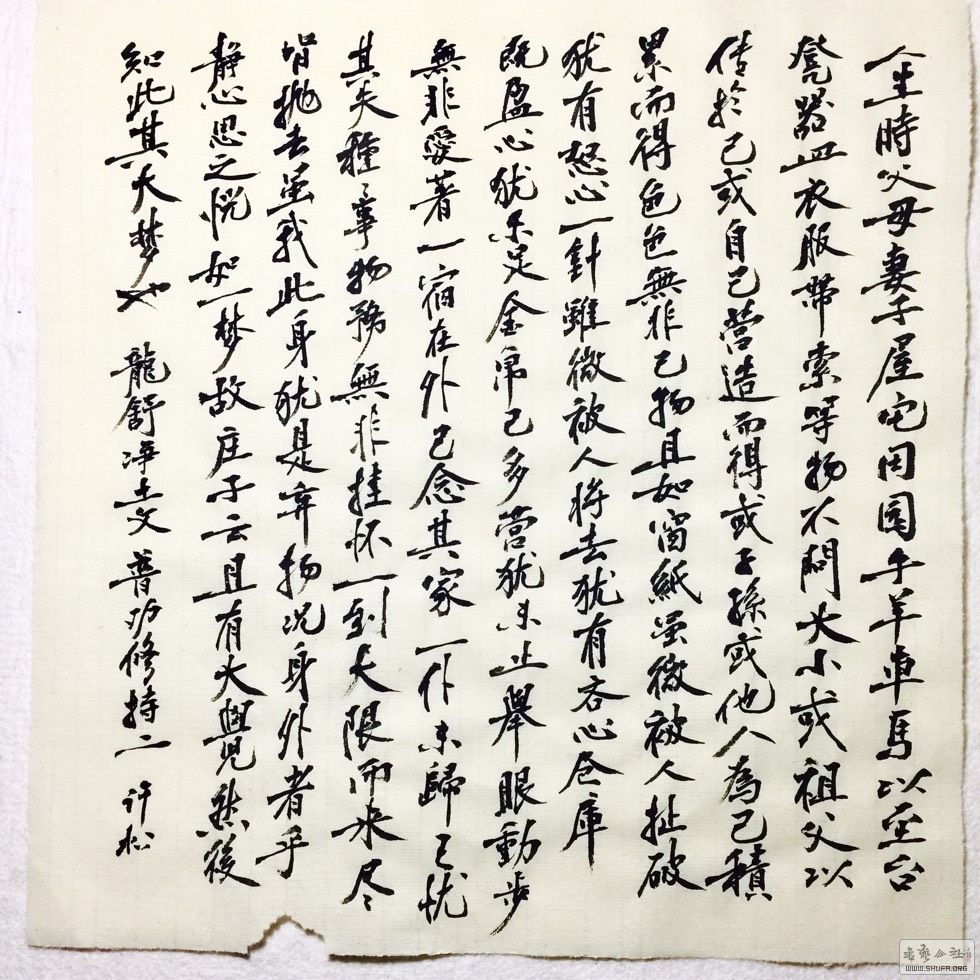 人生時父母妻子屋宅田園牛羊車馬以至台
凳器皿衣服帶索等物不問大小或祖父以
传於己或自己營造而得或子孫或他人為己積
累而得色色無非己物且如窗紙虽微被人扯破
犹有怒心一針雖微被人将去犹有吝心仓庫
既盈心犹未足金帛已多營犹未止舉眼動步
無非愛著一宿在外已念其家一仆未歸已忧
其失種種事物務無非挂怀一到大限而来尽
皆抛去虽我此身犹是弃物况身外者乎
静心思之恍如一梦故庄子云且有大覺然後
知此其大梦也 龍舒净土文 普 修持二 许松
书艺公社
WWW.SHUFA.ORG